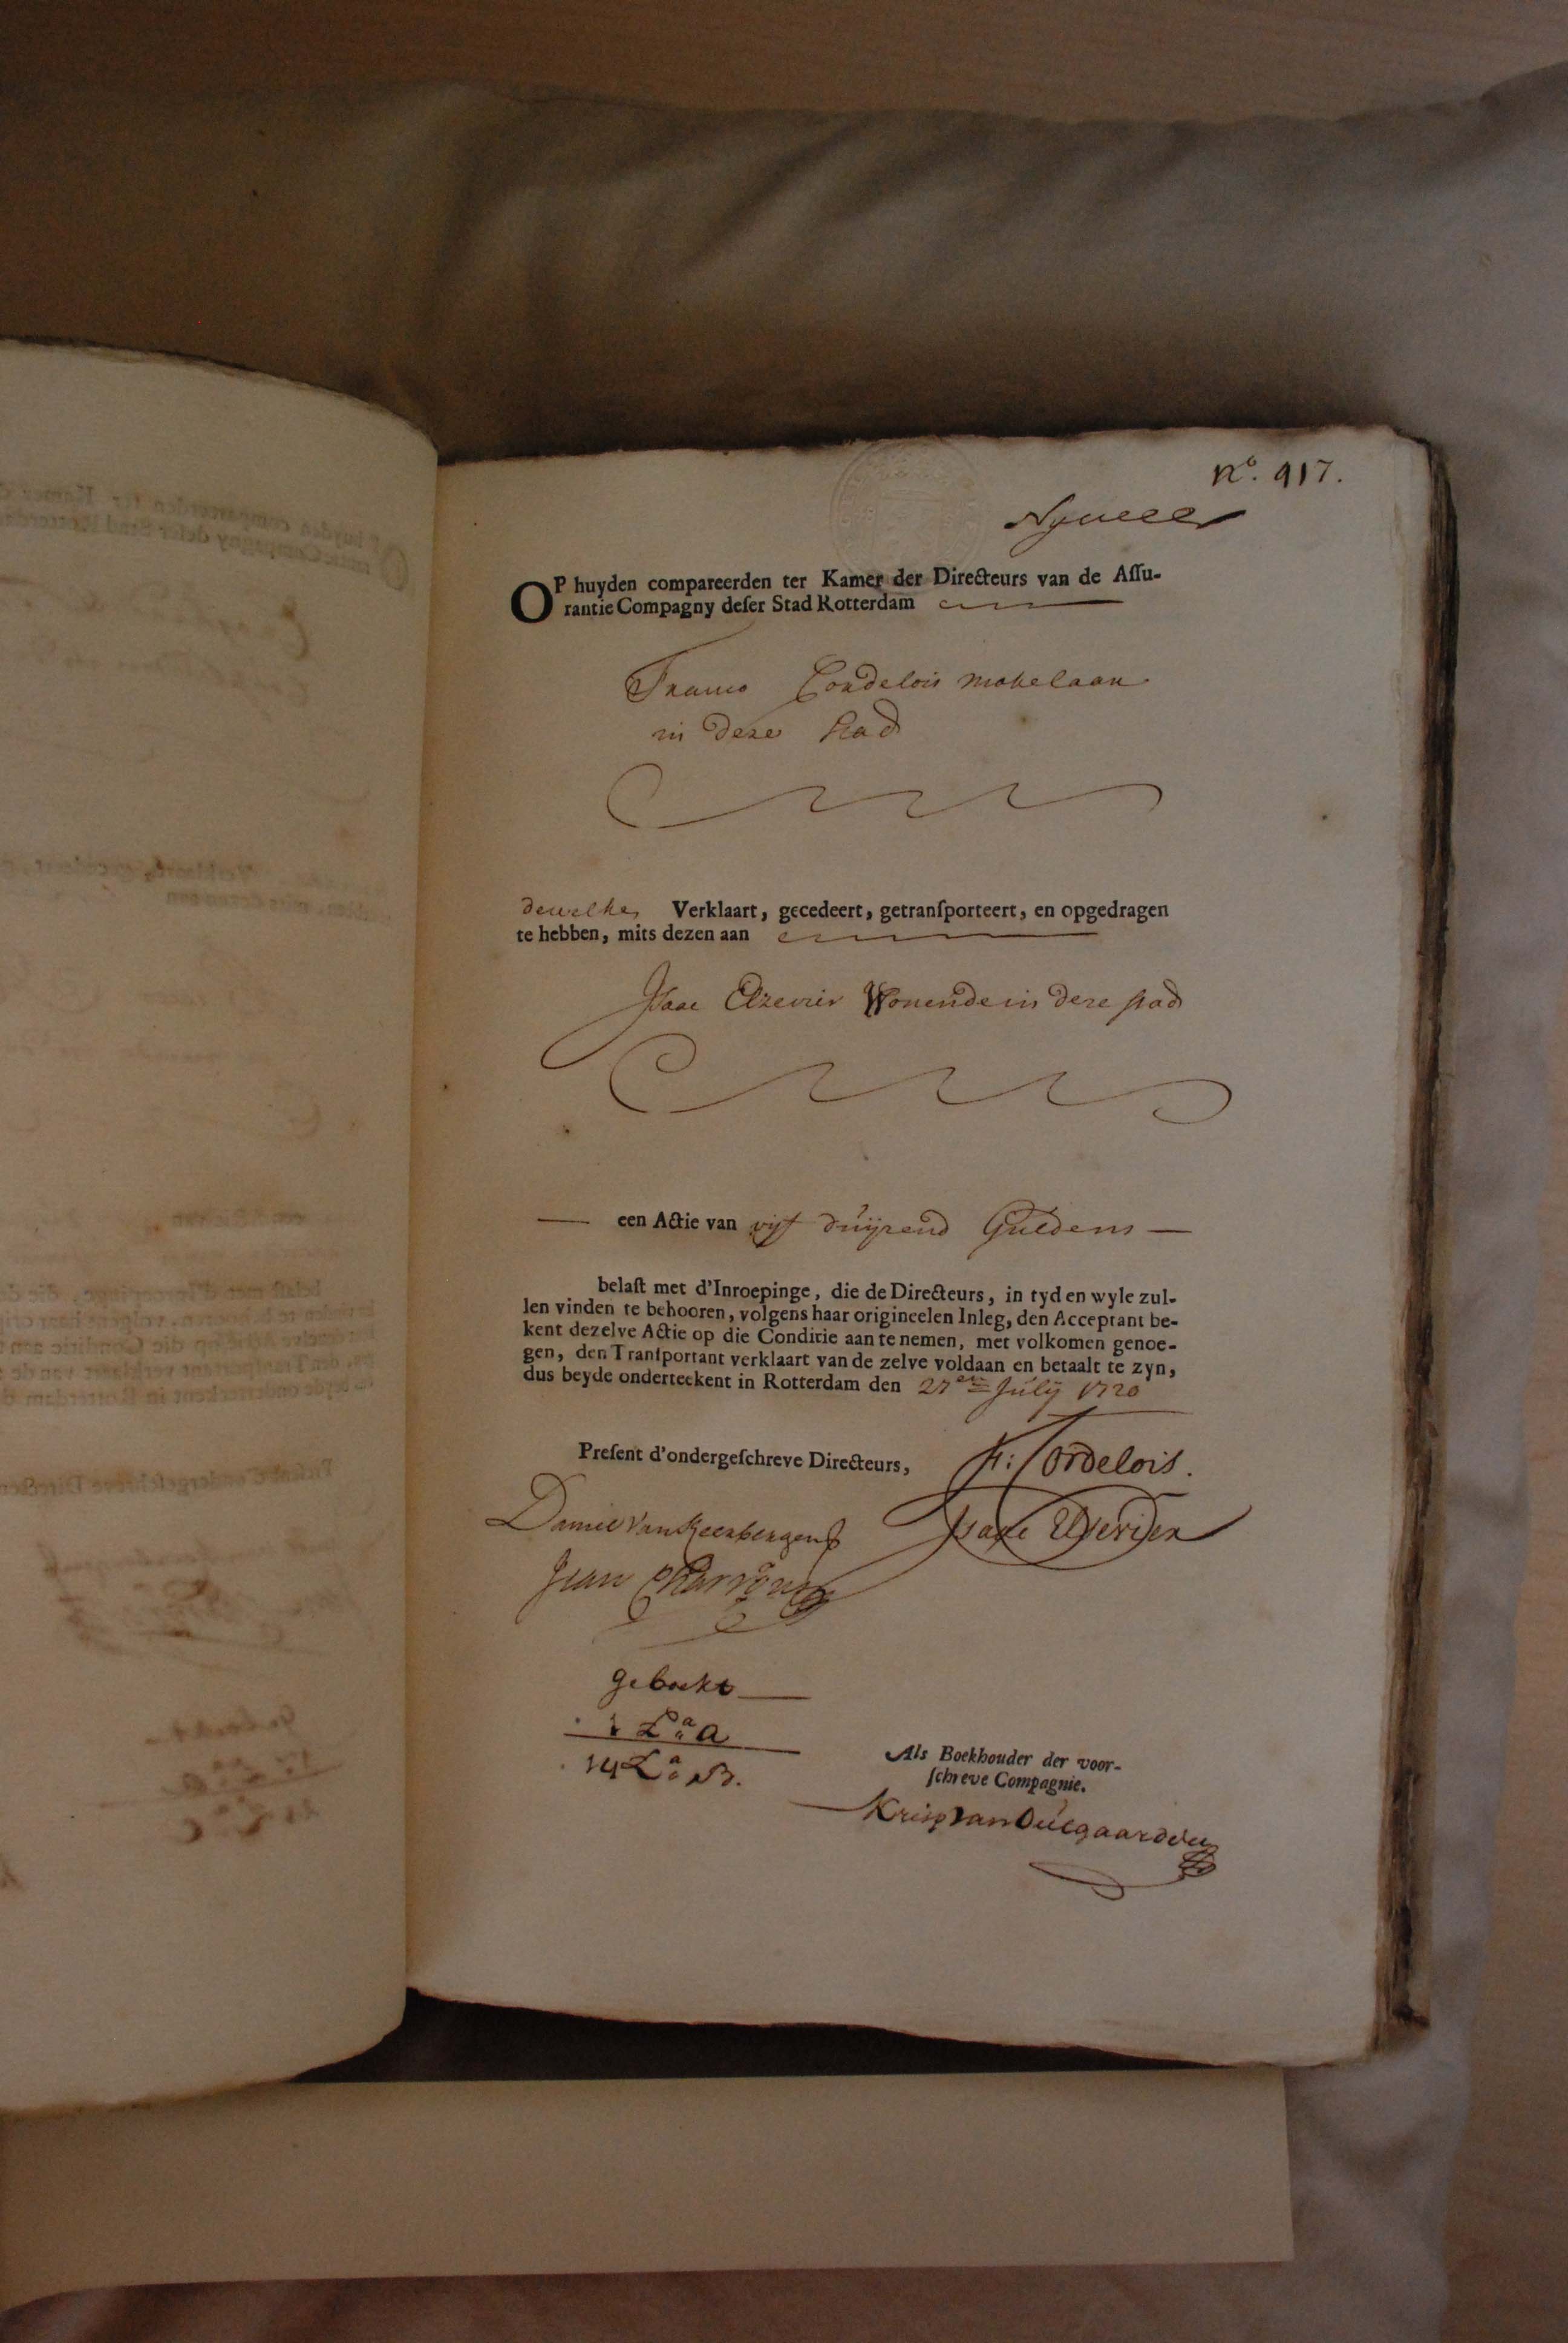 No. 917.
OP huyden compareerden ter Kamer der Directeurs van de Aſſu-
rantie Compagny deſer Stad Rotterdam
Cordelois makelaar
in deze stad
dewelke Verklaart, gecedeert, getranſporteert, en opgedragen
te hebben, mits dezen aan
Isaac Elzevier Wonende in deze stad
een Actie van vijf duijzend Guldens
belaſt met d'Inroepinge, die de Directeurs, in tyd en wyle zul-
len vinden te behooren, volgens haar origineelen Inleg, den Acceptant be-
kent dezelve Actie op die Conditie aan te nemen, met volkomen genoe-
gen, den Tranſportant verklaart van de zelve voldaan en betaalt te zyn,
dus beyde onderteekent in Rotterdam den 27en July 1720
Preſent d'ondergeſchreve Directeurs,
F: Cordelois.
Isaac Elsevier
Jean
geboekt
1 La a
14 La B.
Als Boekhouder der voor-
ſchreve Compagnie.